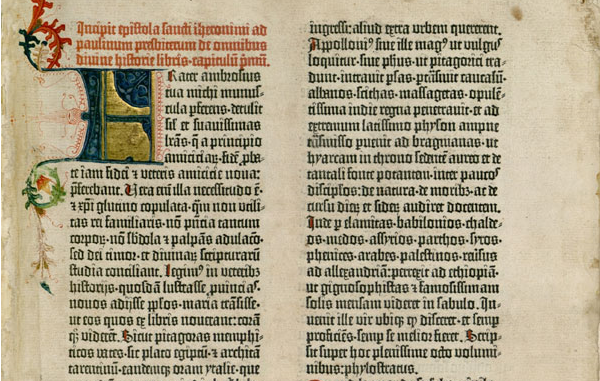 Incipit epistola sancti iheronimi ad
paulinum presbiterum de omnibus
divine historie libris. capitulū pmū.
Frater ambrosius
tua michi munus-
cula pferens. detulit
sil et suavissimas
lrās. q̄ a principio
amiciciaꝝ. fidē pba-
te iam fidei et veteris amicicie nova:
pferebant. Vera eni illa necessitudo ē.
et xpi glutino copulata. qm non utili-
tas rei familiaris. nō pntia tantum
corpoꝝ. nō sbdola et palpās adulacō.
sed dei timor. et divinaꝝ scripturarum
studia conciliant. Legim⁹ in veteribꝫ
historijs. quosdā lustrasse. puīcias.
novos adijsse pplos. maria trāsisse.
ut eos quos ex libris noverant: corā
qꝫ viderēt. Sicut pitagoras memphi-
ticos vates. sic plato egiptū. et architā
tarentinū. eandemqꝫ oram ytalie. que
ingressi: aliud extra urbem quererent.
Appolloni⁹ sive ille mag⁹ ut vulgus
loquitur. sive phus. ut pitagorici tra-
dunt. intravit psas. ptrāsivit caucasū.
albanos. scithas. massagetas. opulē-
tissima indie regna penetravit: et ad
extremum latissimo physon amne
trāsmisso pvenit ad bragmanas. ut
hyarcam in throno sedētē aureo et de
tantali fonte potantem. inter paucos
discipulos: de natura. de moribꝫ. ac de
cursu dieꝝ et sideꝝ audiret docentem.
Inde p elamitas. babilonios. chalde-
os. medos. assyrios. parthos. syros.
phenices. arabes. palestinos. reversus
ad allexandriā: perrexit ad ethiopiā.
ut gignosophistas et famosissimam
solis mensam videret in sabulo. In-
venit ille vir ubiqꝫ qd disceret: et semp
proficiēs. semp se melior fieret. Scrip-
sit super hoc plenissime octo volumi-
nibus: phylostratus.